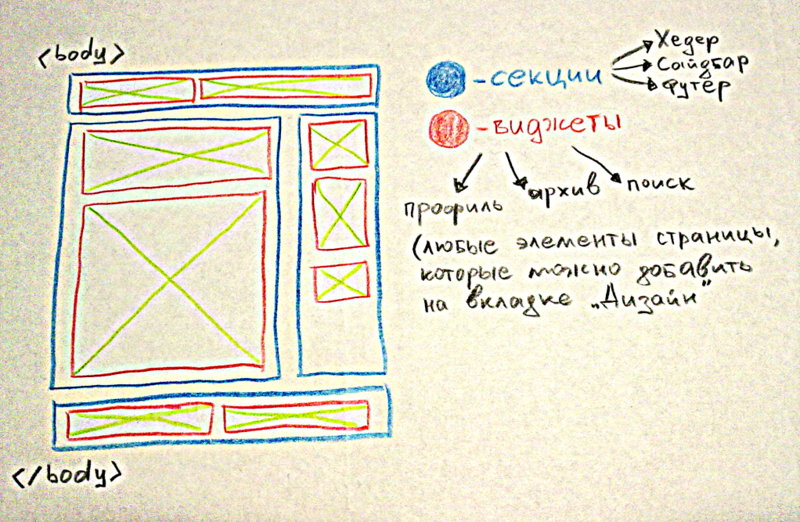 <body>
- секции
Хедер
Сайдбар
Футер
- виджеты
профиль
архив
поиск
(любые элементы страницы,
которые можно добавить
на вкладке „Дизайн"
</body>